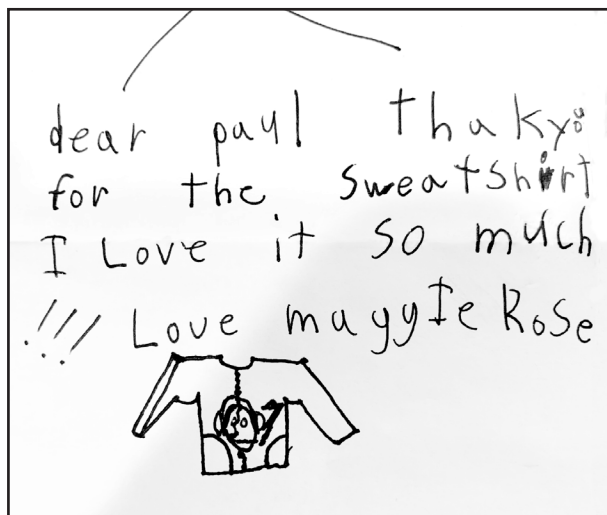 dear paul thakyou
for the sweatshirt
I Love it so much
!!! Love maggIe Rose